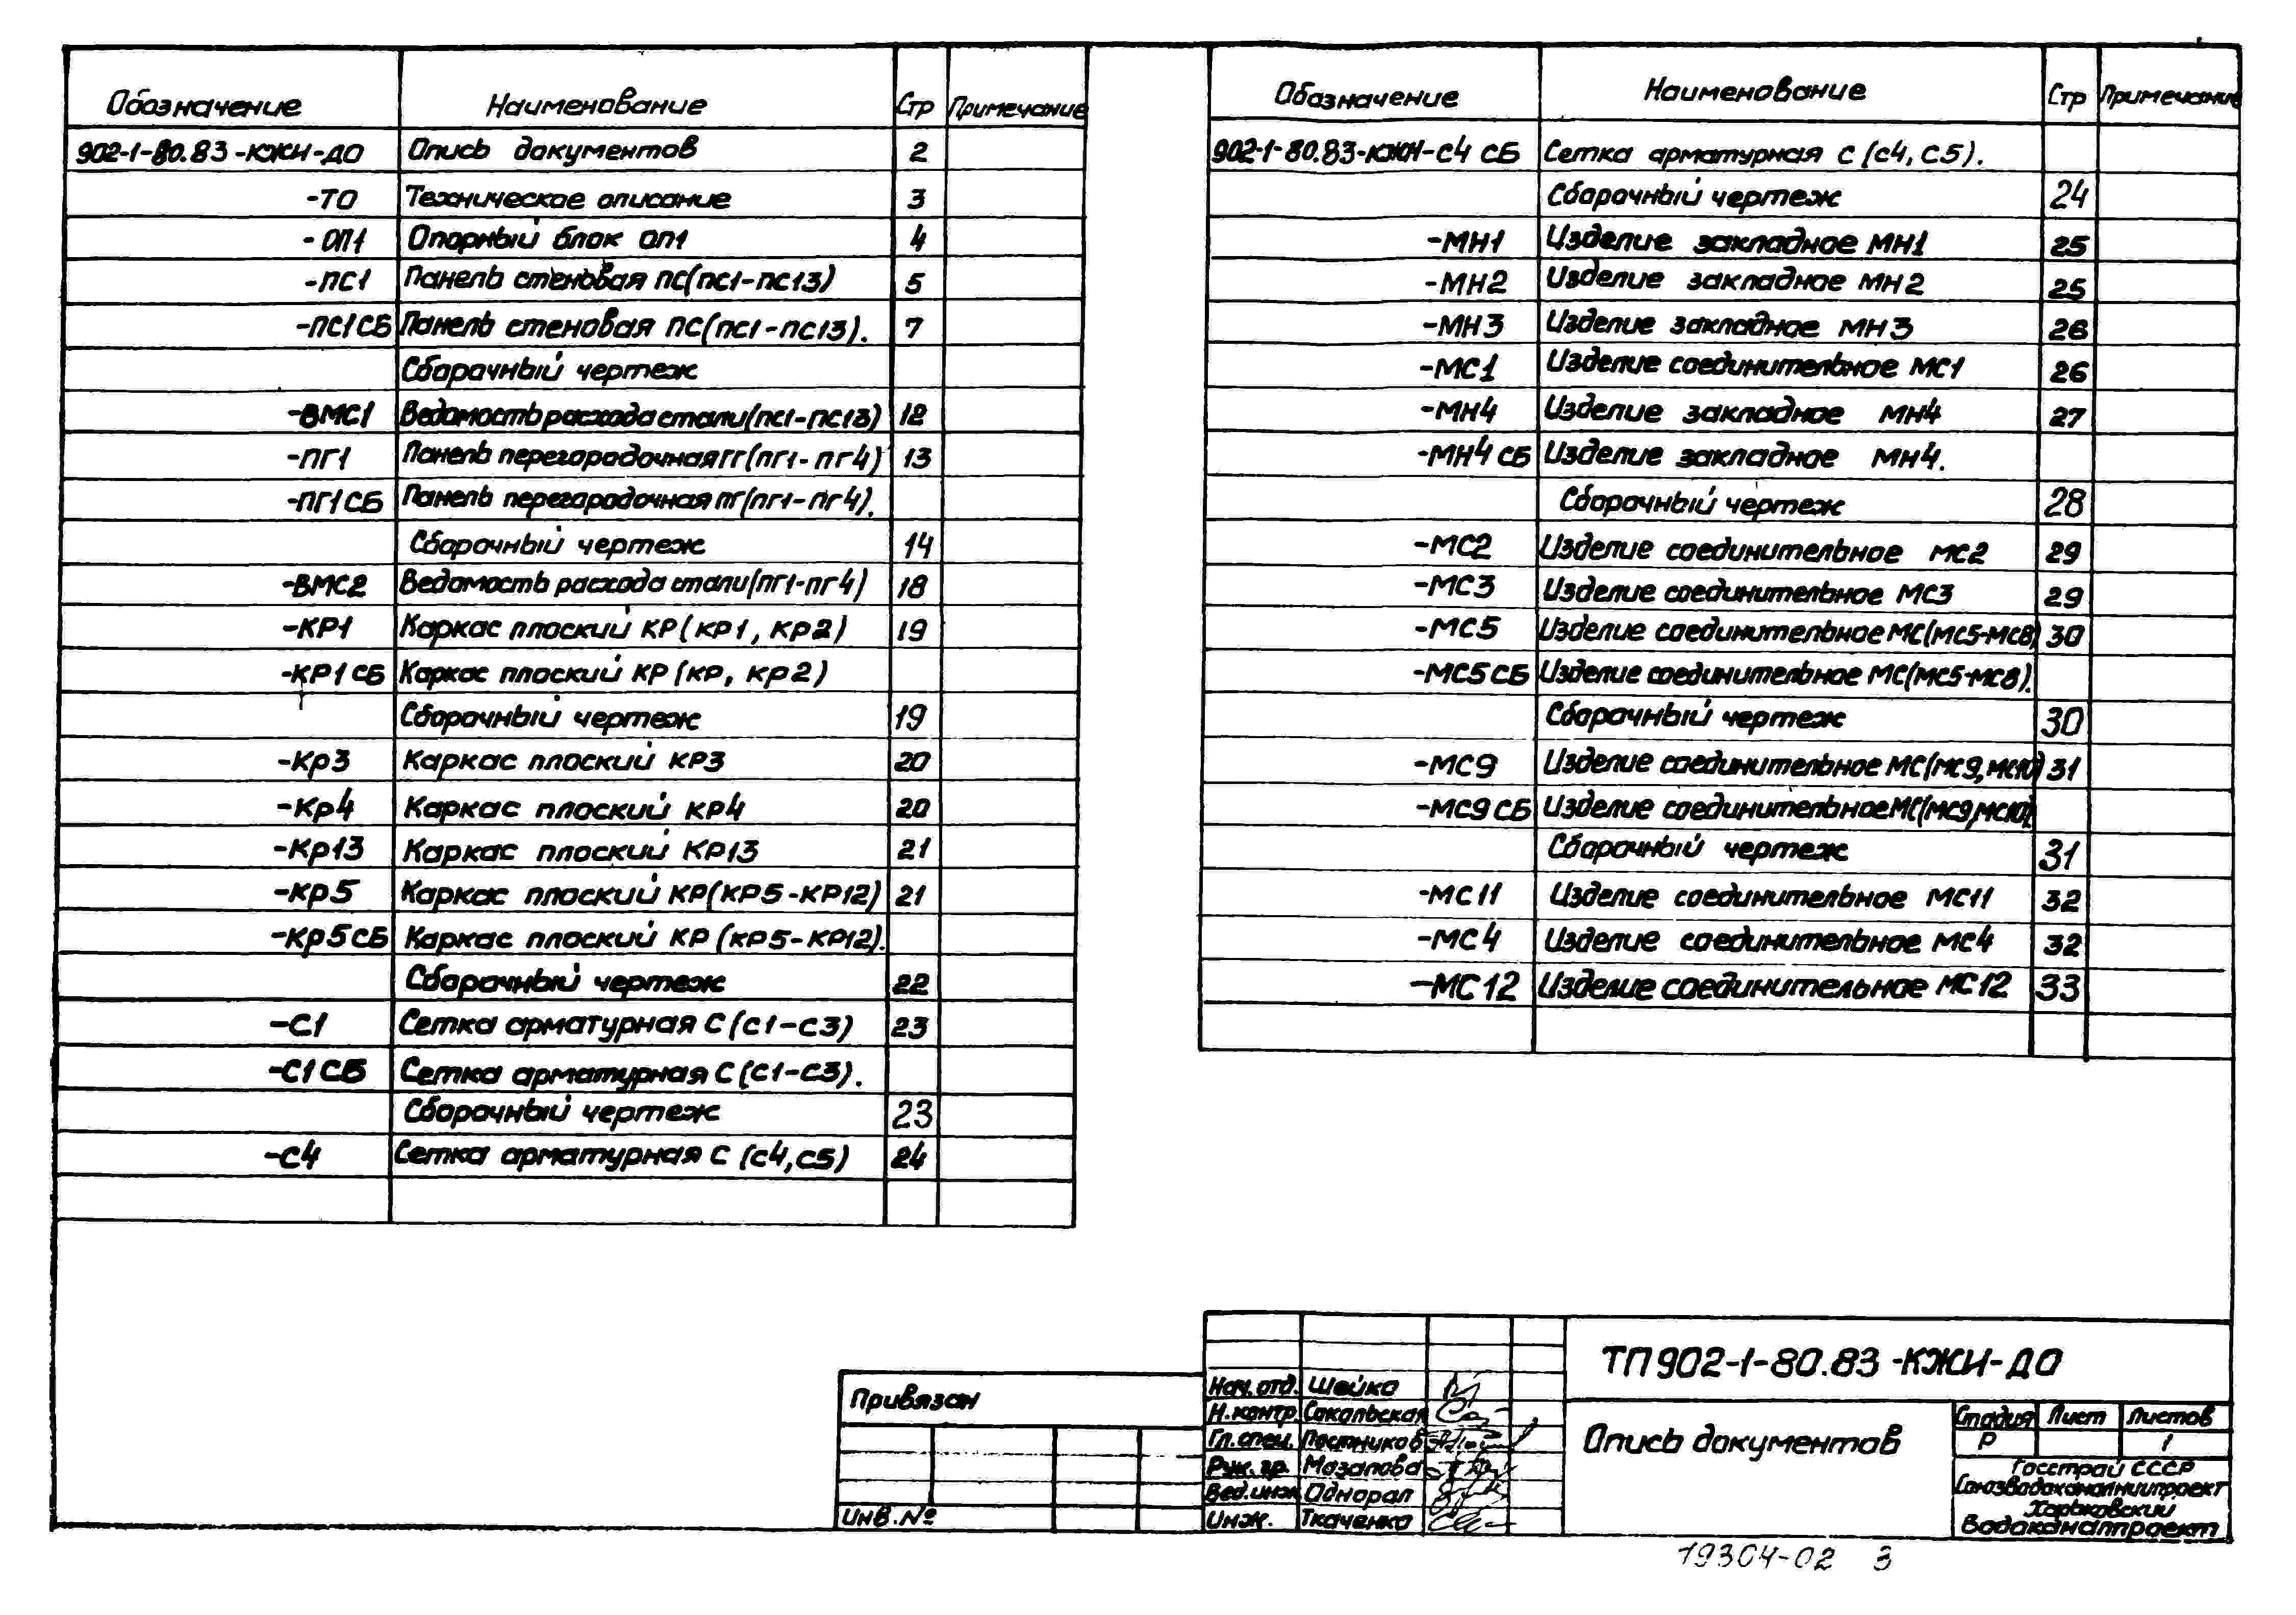 Обозначение Наименование Стр Примечание
902-1-80.83-КЖИ-ДО Опись документов 2
-ТО Техническое описание 3
-ОП1 Опорный блок ОП1 4
-ПС1 Панель стеновая ПС(ПС1-ПС13) 5
-ПС1СБ Панель стеновая ПС(ПС1-ПС13). 7
Сборочный чертеж
-ВМС1 Ведомость расхода стали(ПС1-ПС13) 12
-ПГ1 Панель перегородочная ПГ(ПГ1-ПГ4) 13
-ПГ1СБ Панель перегородочная ПГ(ПГ1-ПГ4).
Сборочный чертеж 14
-ВМС2 Ведомость расхода стали(ПГ1-ПГ4) 18
-КР1 Каркас плоский КР(КР1, КР2) 19
-КР1СБ Каркас плоский КР(КР, КР2)
Сборочный чертеж 19
-Кр3 Каркас плоский КР3 20
-Кр4 Каркас плоский КР4 20
-Кр13 Каркас плоский КР13 21
-кр5 Каркас плоский КР(КР5-КР12) 21
-Кр5СБ Каркас плоский КР(КР5-КР12).
Сборочный чертеж 22
-С1 Сетка арматурная С(С1-С3) 23
-С1СБ Сетка арматурная С(С1-С3).
Сборочный чертеж 23
-С4 Сетка арматурная С(С4,С5) 24
Обозначение Наименование Стр Примечание
902-1-80.83-КЖИ-С4 СБ Сетка арматурная С(С4, С5).
Сборочный чертеж 24
-МН1 Изделие закладное МН1 25
-МН2 Изделие закладное МН2 25
-МН3 Изделие закладное МН3 26
-МС1 Изделие соединительное МС1 26
-МН4 Изделие закладное МН4 27
-МН4СБ Изделие закладное МН4.
Сборочный чертеж 28
-МС2 Изделие соединительное МС2 29
-МС3 Изделие соединительное МС3 29
-МС5 Изделие соединительное МС(МС5-МС8) 30
-МС5СБ Изделие соединительное МС(МС5-МС8).
Сборочный чертеж 30
-МС9 Изделие соединительное МС(МС9,МС10) 31
-МС9СБ Изделие соединительное МС(МС9,МС10).
Сборочный чертеж 31
-МС11 Изделие соединительное МС11 32
-МС4 Изделие соединительное МС4 32
-МС12 Изделие соединительное МС12 33
Привязан
Инв.№
Нач.отд. Шейко
Н.контр. Сокольская
Гл.спец. Постников
Рук.гр. Мазалова
Вед.инж. Однорал
Инж. Ткаченко
ТП 902-1-80.83-КЖИ-ДО
Опись документов
Стадия Лист Листов
Р 1
Госстрой СССР
Союзводоканалниипроект
Харьковский
Водоканалпроект
19304-02 3